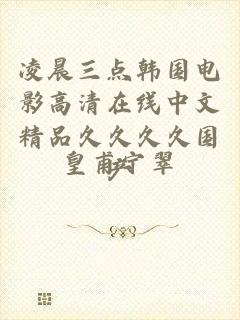 凌晨三点韩国电
影高清在线中文
精品久久久久国
皇甫宁翠